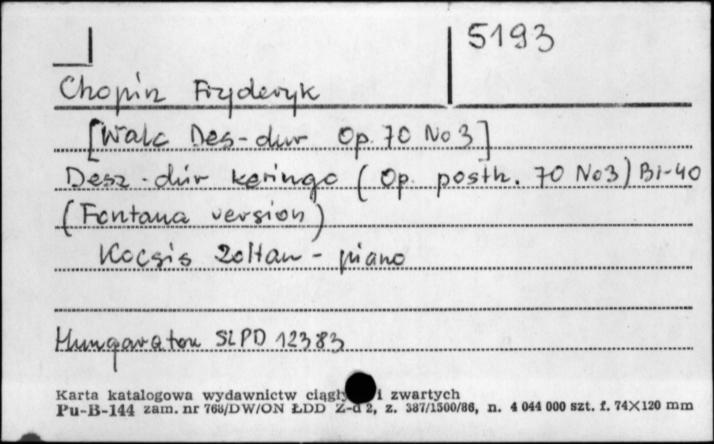 5193
Chopin Fryderyk
[Walc Des-dur Op. 70 No 3]
Desz-dúr keringo (Op. posth. 70 No3) BI-40
(Fontana version)
Kocsis Zoltan - piano
Hungaroton SLPD 12383
Karta katalogowa wydawnictw ciągły i zwartych
Pu-B-144 zam. nr 768/DW/ON ŁDD Z-d 2, z. 387/1500/86, n. 4 044 000 szt. f. 74X120 mm